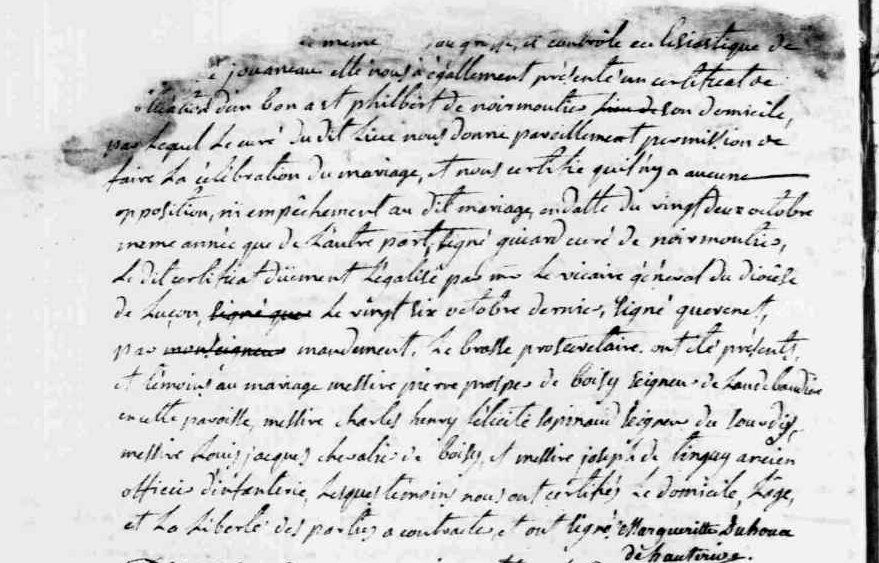 meme et contrôle eclesiastique de
jouaneau elle nous a égallement présenté un certificat de
d'un bon a st philbert de noirmoutier lieu de son domicile,
par lequel le curé du dit lieu nous donne pareillement permission de
faire la célébration du mariage, et nous certifie qu'il n'y a aucune
opposition, ni empêchement au dit mariage, en datte du vingt deux octobre
meme année que de l'autre part, signé guiard curé de noirmoutier,
le dit certificat düement légalisé par mr le vicaire général du diocèse
de luçon, signé que le vingt six octobre dernier, signé querenet,
par monseigneur mandement. le brasse prosecretaire. ont été présents,
et témoins au mariage messire pierre prosper de boisy seigneur de landebaudière
en cette paroisse, messire charles henry félicité sapinaud seigneur du sourdis,
messire louis jacques chevalier de boisy, et messire joseph de tinguy ancien
officier d'infanterie, lesques témoins nous ont certifiés le domicile, l'age,
et la liberté des parties a contracter et ont signé. Margueritte Duhoux
de hauterive.